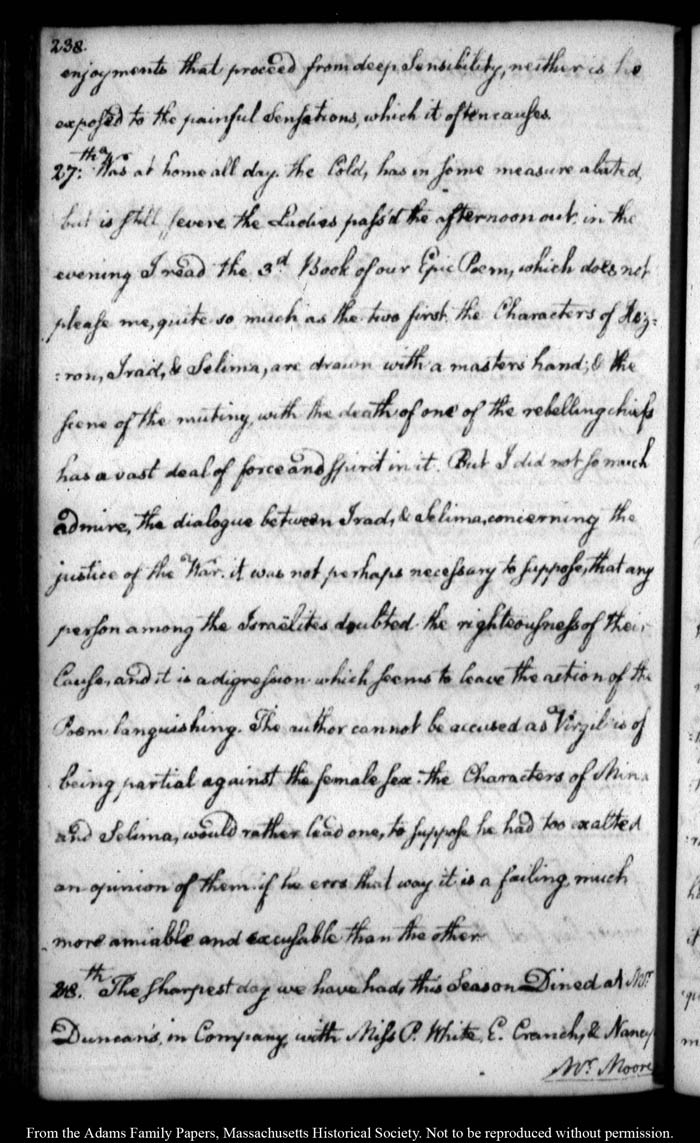 238.
enjoyments that proceed from deep Sensibility, neither is he
exposed to the painful Sensations, which it often causes.
27.th Was at home all day. the Cold, has in some measure abated,
but is still severe the Ladies pass'd the afternoon out. in the
evening I read the 3.d Book of our Epic Poem, which does not
please me, quite so much as the two first. the Characters of Hez-
-ron, Irad, & Selima, are drawn with a masters hand; & the
scene of the mutiny, with the death of one of the rebelling chiefs
has a vast deal of force and spirit in it. But I did not so much
admire, the dialogue between Irad, & Selima, concerning the
justice of the War. it was not perhaps necessary to suppose, that any
person among the Israëlites doubted the righteousness of their
Cause, and it is a digression which seems to leave the action of the
Poem languishing. The author cannot be accused as Virgil is of
being partial against the female sex. the Characters of Mina
and Selima, would rather lead one, to suppose he had too exalted
an opinion of them. if he errs that way it is a failing, much
more amiable and excusable than the other.
28.th The sharpest day we have had, this Season. Dined at Mr
Duncan's, in Company, with Miss P. White, E. Cranch, & Nancy
Mr. Moore
From the Adams Family Papers, Massachusetts Historical Society. Not to be reproduced without permission.